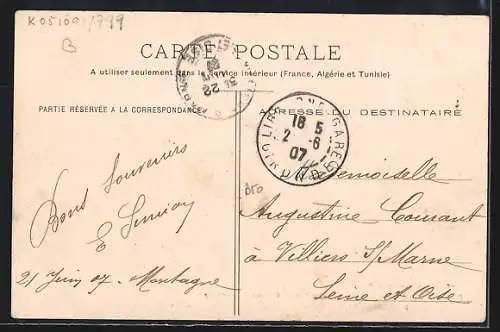 K051091/799
B
CARTE POSTALE
A utiliser seulement dans le Service intérieur (France, Algérie et Tunisie)
PARTIE RÉSERVÉE A LA CORRESPONDANCE
ADRESSE DU DESTINATAIRE
22
18 5
2 -6
07
Bons Souvenirs
E
21 Juin 07. Montagne
Mademoiselle
Augustine
à Villiers S/Marne
Seine et Oise